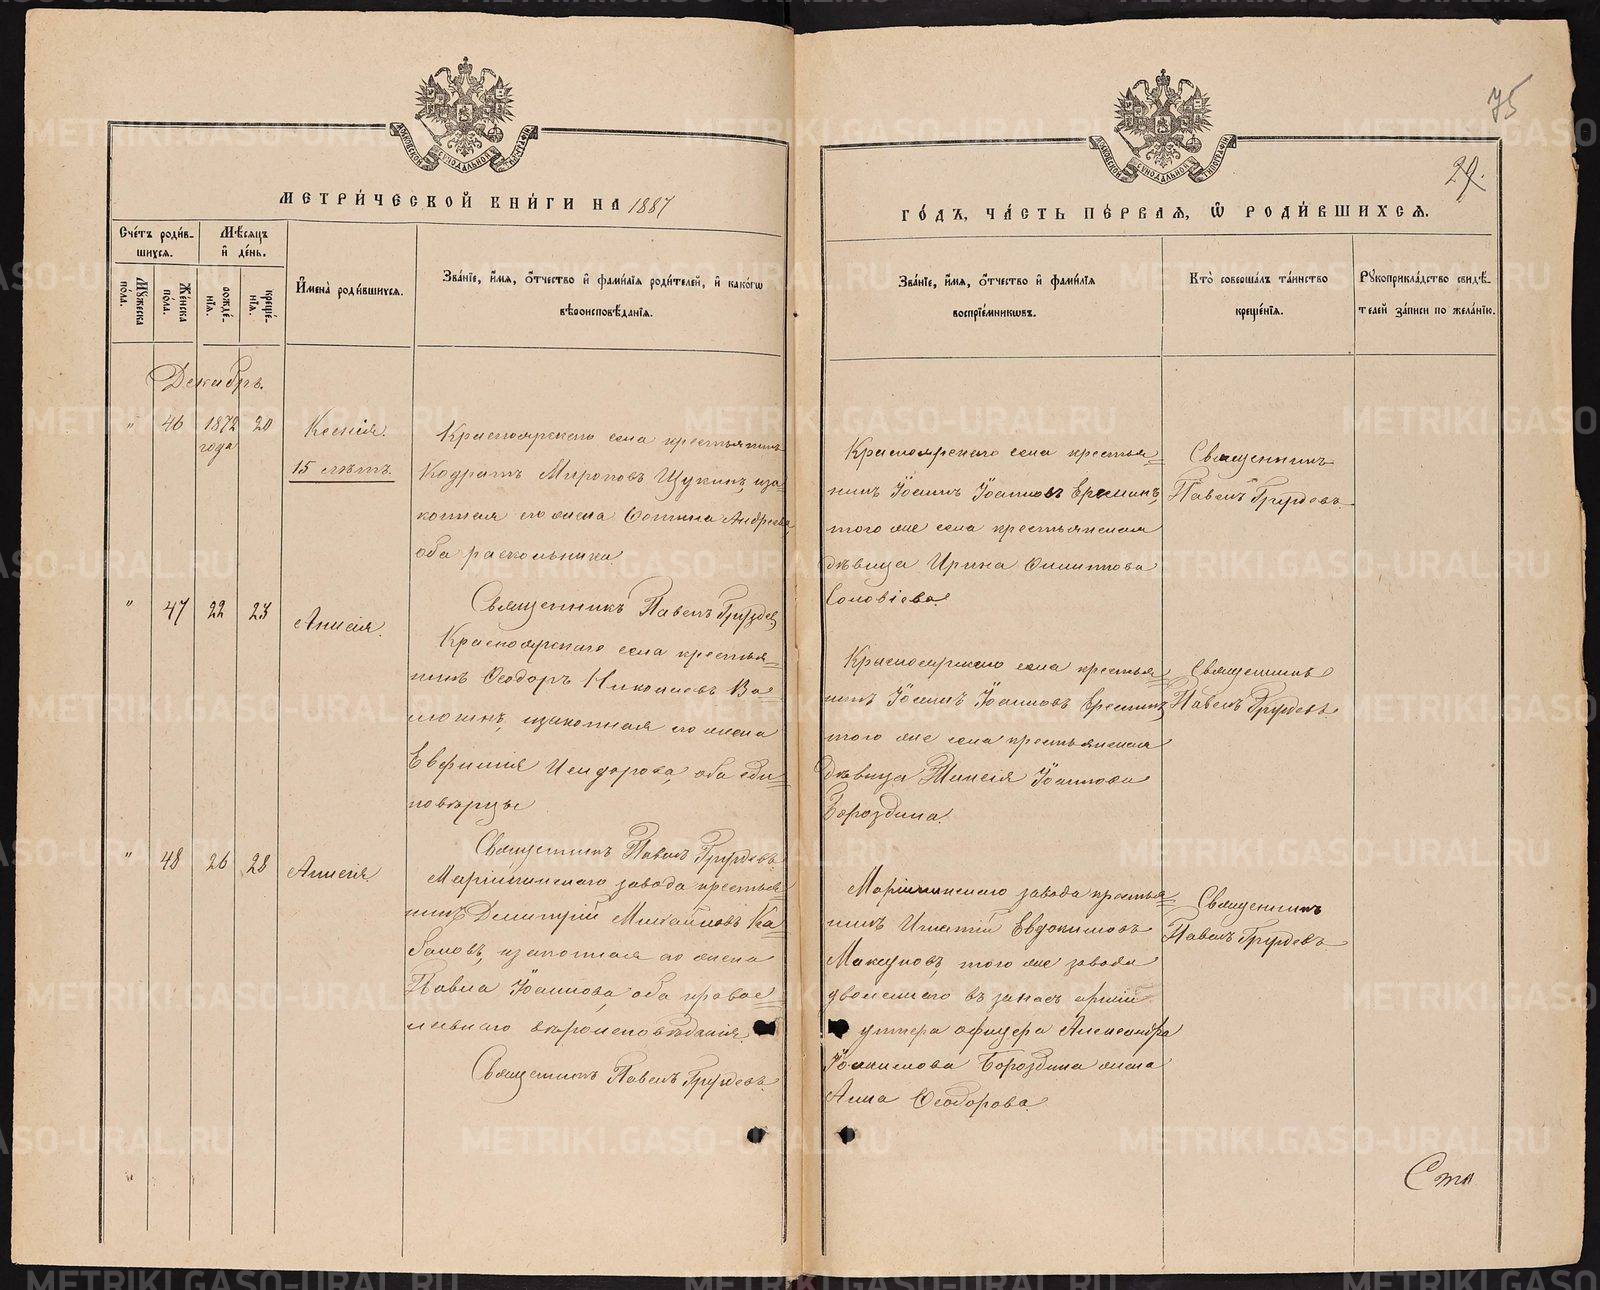 75
29.
МЕТРИ́ЧЕСКОЙ КНИ́ГИ НА 1887
ГО́ДЪ, ЧА́СТЬ ПЕ́РВАЯ, Ѡ҆ РОДИ́ВШИХСЯ.
Сче́тъ роди́в-
шихся.
Мѣ́сяцъ
и҆ де́нь.
Мꙋ́жеска
по́ла.
Же́нска
по́ла.
рожде́-
нїѧ.
креще́-
нїѧ.
И҆мена̀ роди́вшихся.
Зва́нїе, и҆́мѧ, о҆́тчество и҆ фами́лїѧ роди́телей, и҆ како́гѡ
вѣроисповѣ́данїѧ.
Зва́нїе, и҆́мѧ, о҆́тчество и҆ фами́лїѧ
воспрїе́мникѡвъ.
Кто̀ соверша́лъ та́инство
креще́нїѧ.
Рꙋкоприкла́дство свидѣ́-
телей за́писи по жела́нїю.
Декабрь.
" 46 1872 года 20
Ксенія.
15 лѣтъ.
Красноярскаго села крестьянинъ
Кодратъ Мироновъ Щукинъ, иза-
конная его жена Сотина Андреева
оба раскольники
Священникъ Павелъ Груздев
Красноярскаго села крестья=
нинъ Іоаннъ Іоанновъ Ереминъ,
того же села крестьянская
дѣвица Ирина Филиппова
Соловіева.
Священникъ
Павелъ Груздевъ
" 47 22 23
Анисія.
Красноярскаго села крестья=
нинъ Ѳеодоръ Николаевъ Ва=
люкинъ, изаконная его жена
Евфимія Исидорова, оба еди=
новѣрцы
Священникъ Павелъ Груздевъ
Красноярскаго села крестья=
нинъ Іоаннъ Іоанновъ Ереминъ,
того же села крестьянская
дѣвица Таисія Іоаннова
Бороздина.
Священникъ
Павелъ Груздевъ
" 48 26 28
Анисія.
Маріинскаго завода крестья=
нинъ Димитрій Михайловъ Ка=
баковъ, изаконная его жена
Павла Іоаннова, оба правос=
лавнаго вѣроисповѣданія.
Священникъ Павелъ Груздевъ.
Маріинскаго завода крестья=
нинъ Игнатій Евдокимовъ
Макуровъ, того же завода
уволеннаго въ запасъ арміи
унтера офицера Александра
Іоакимова Бороздина жена
Анна Ѳеодорова.
Священникъ
Павелъ Груздевъ
"
Сто
METRIKI.GASO-URAL.RU